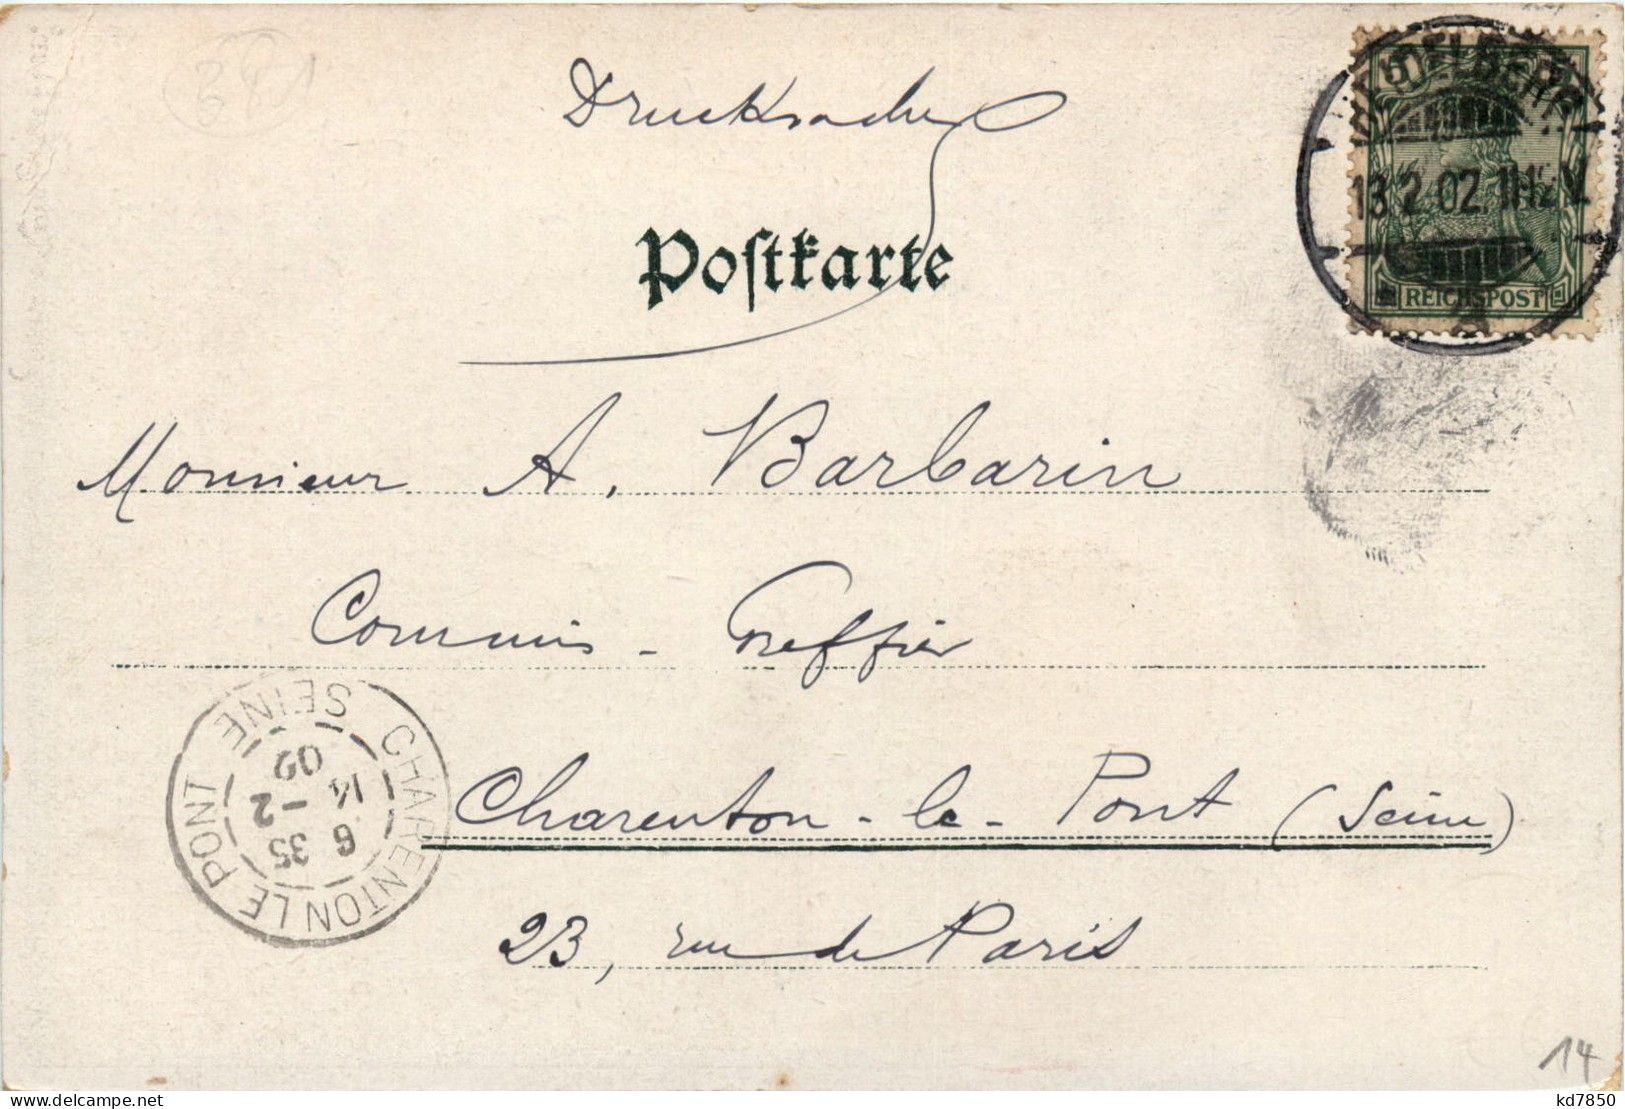 381
Drucksache
Postkarte
5
HEIDELBERG
13.2.02.11-12V.
REICHSPOST
Monsieur A. Barbarin
Commis-Greffier
Charenton-le-Pont (Seine)
23, rue de Paris
CHARENTON LE PONT
SEINE
6 35
14 -2
02
14
kd7850